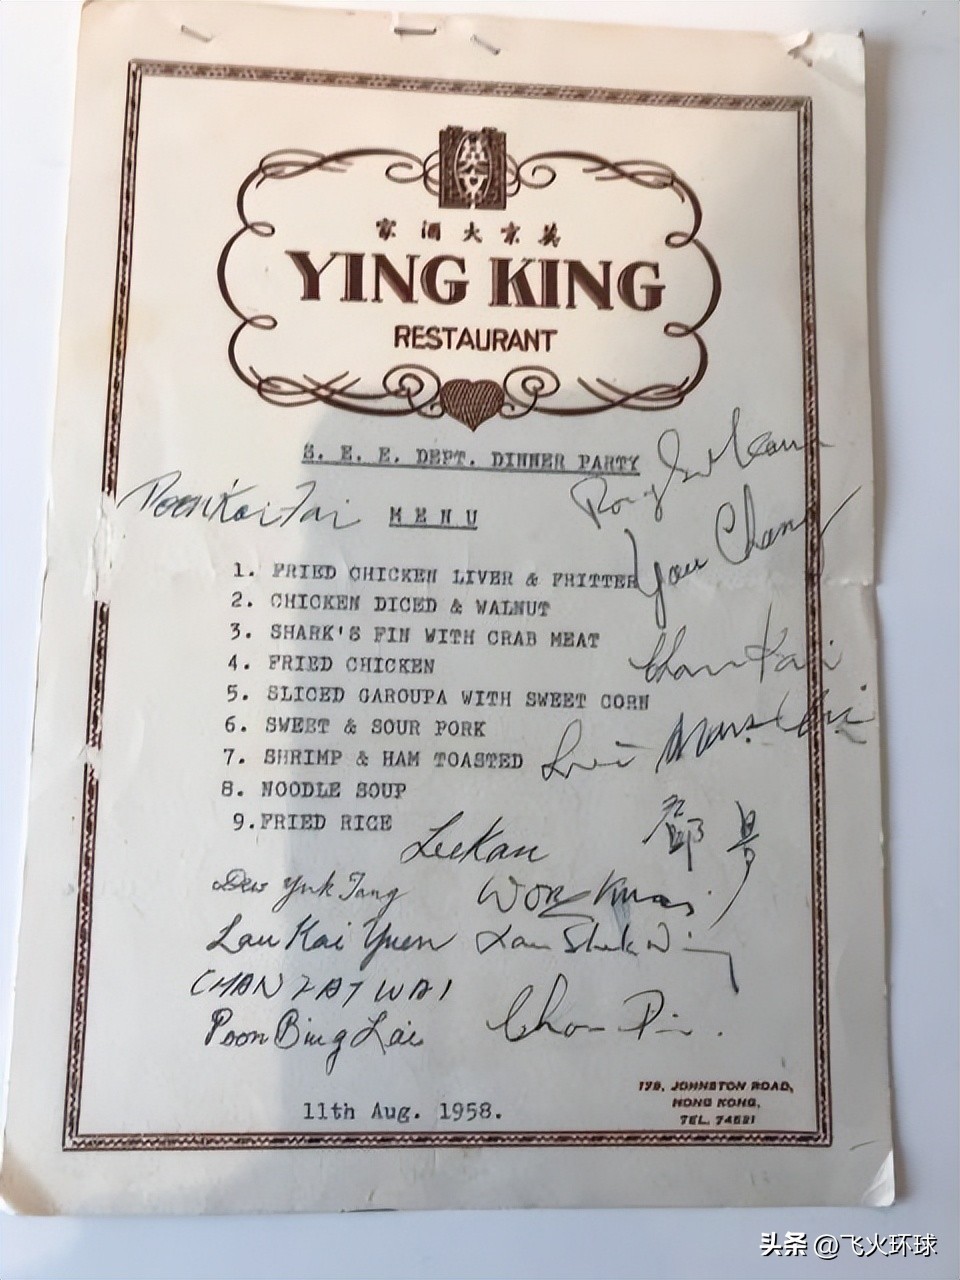 家酒大京英
YING KING
RESTAURANT
S. E. E. DEPT. DINNER PARTY
Poon Kai Fai
MENU
You Chang
1. FRIED CHICKEN LIVER & FRITTER
2. CHICKEN DICED & WALNUT
3. SHARK'S FIN WITH CRAB MEAT
Chan Kai
4. FRIED CHICKEN
5. SLICED GAROUPA WITH SWEET CORN
6. SWEET & SOUR PORK
7. SHRIMP & HAM TOASTED
8. NOODLE SOUP
9. FRIED RICE
鄧
Lee Kan
Yuk Tang
Lau Kai Yuen
Lau Shek
CHAN YAT WAI
Poon Bing Lai
179, JOHNSTON ROAD,
HONG KONG,
TEL. 74621
11th Aug. 1958.
头条 @飞火环球